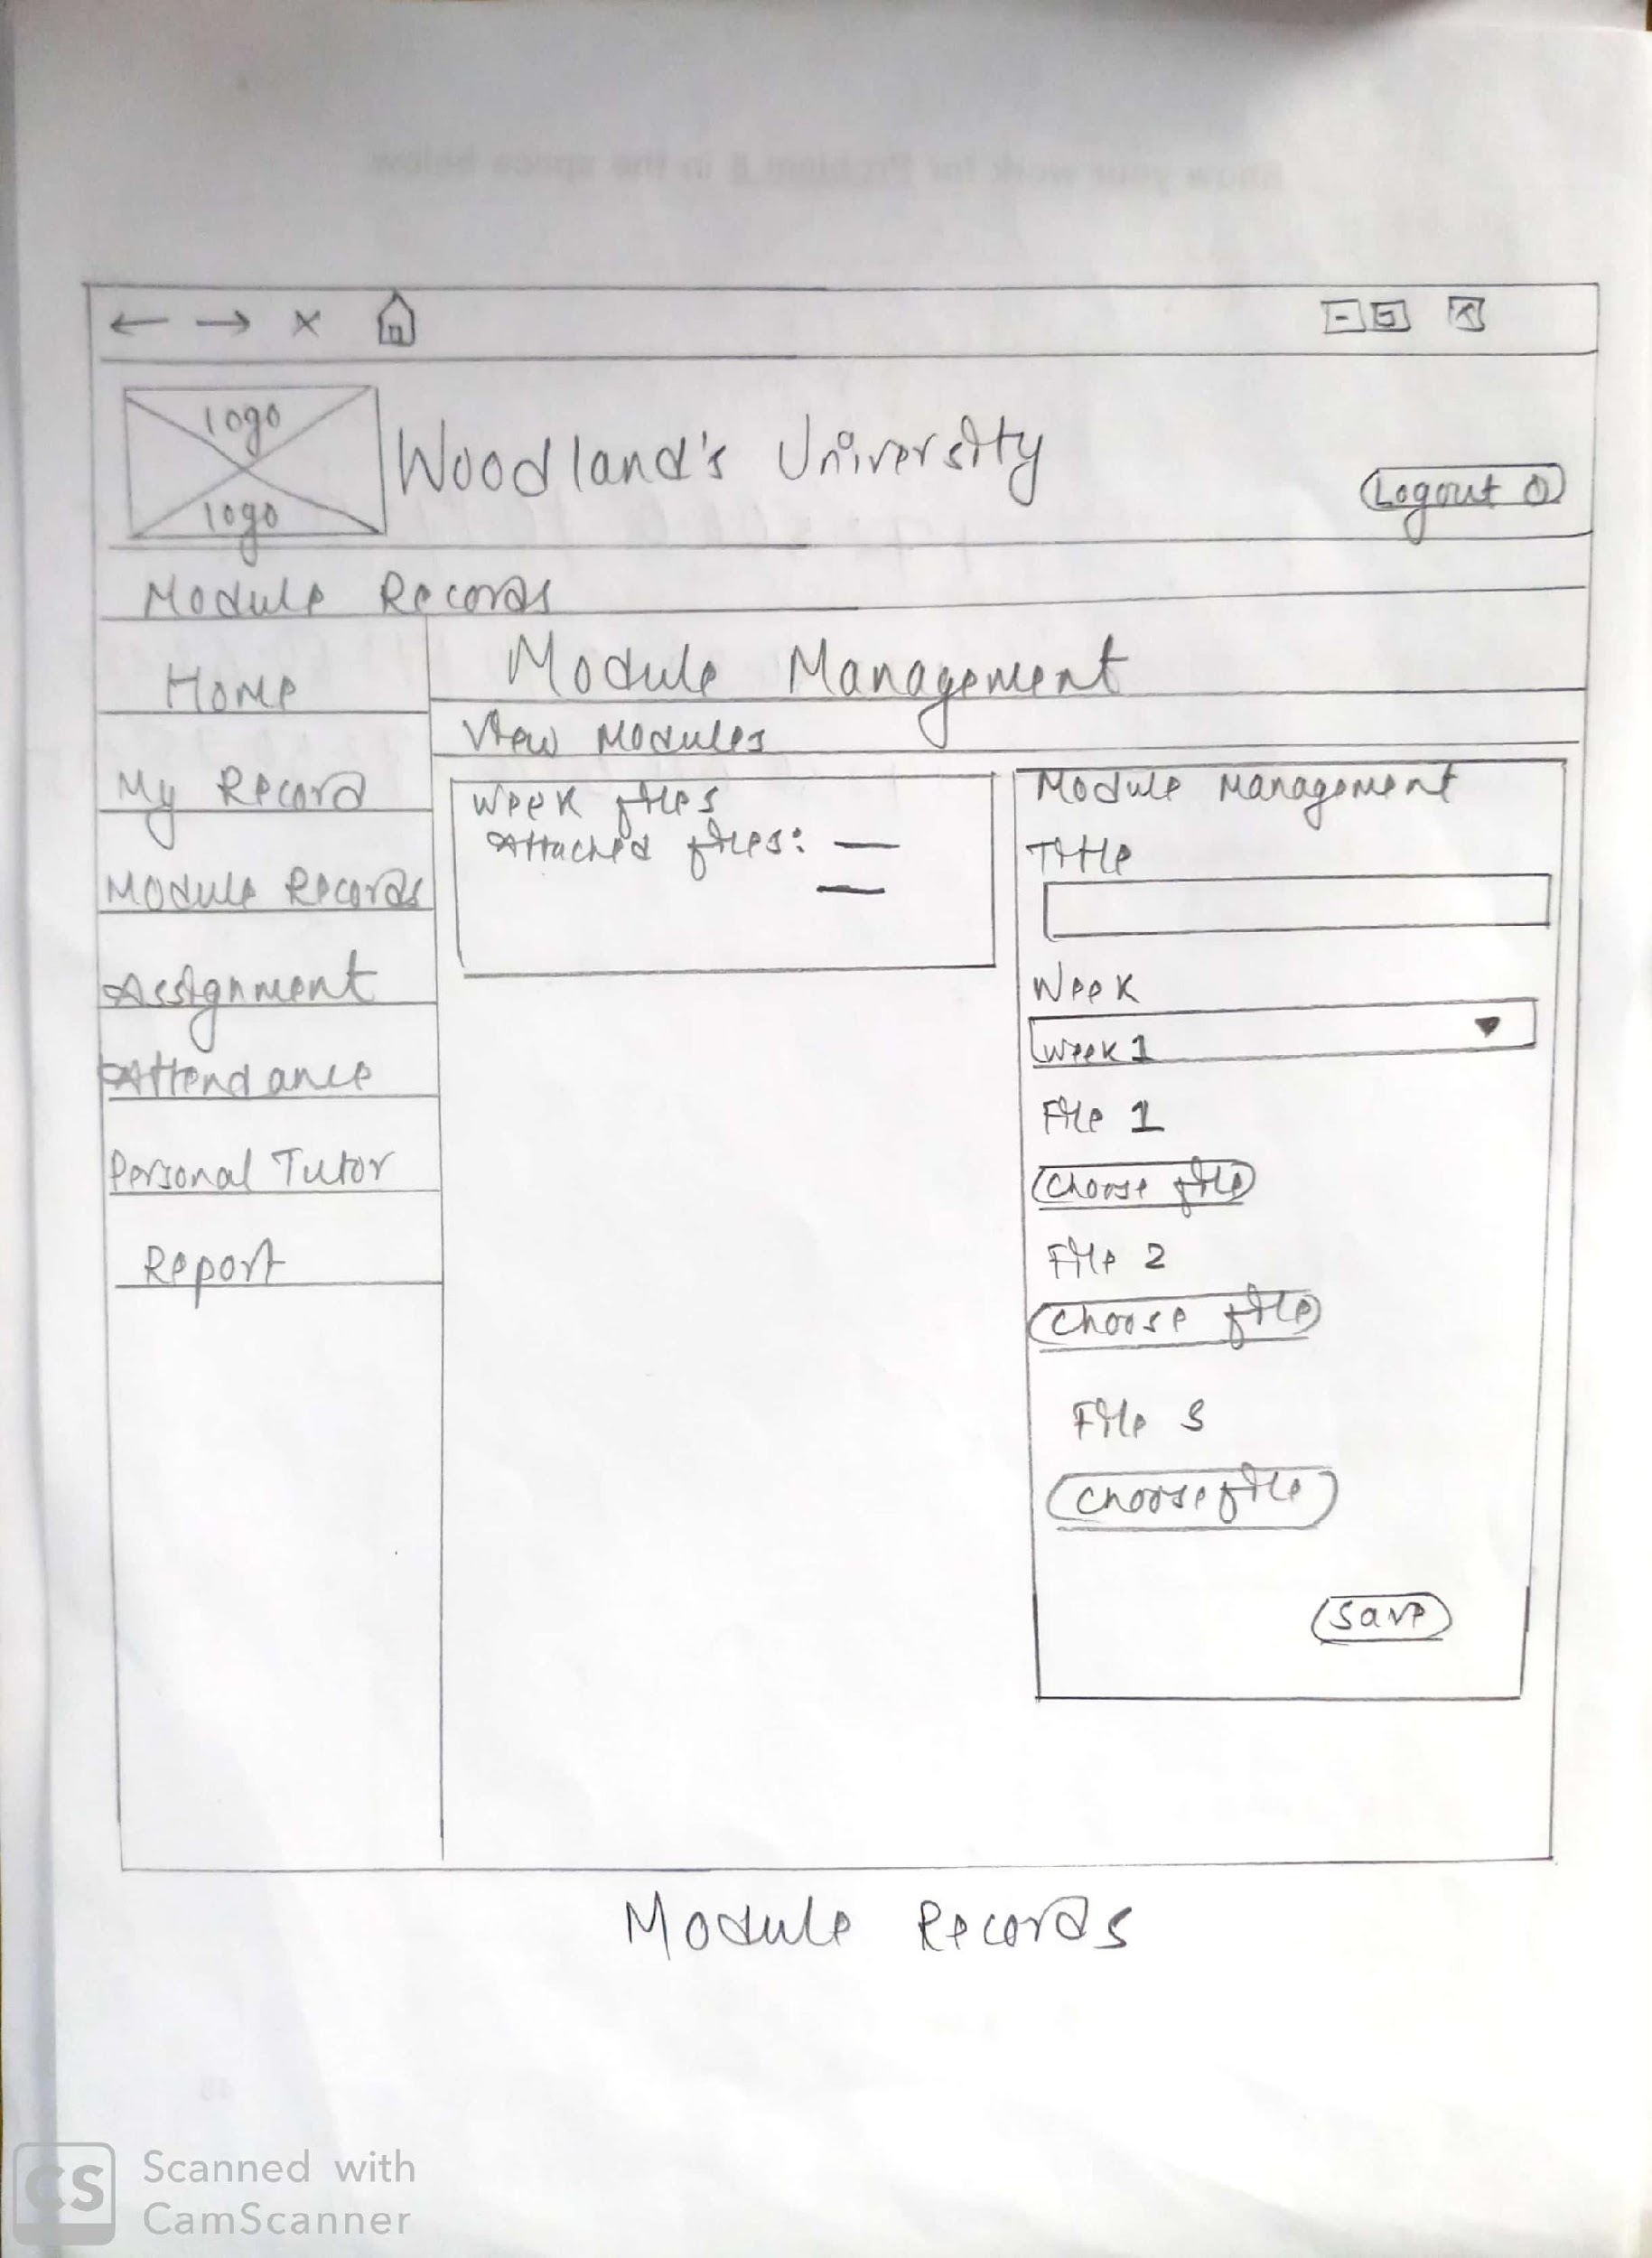 Show your work for Problem 8 in the space below
logo
logo
Woodland's University
Logout
Module Records
Home
My Record
Module Records
Assignment
Attendance
Personal Tutor
Report
Module Management
View Modules
Week files
Attached files:
Module Management
Title
Week
Week 1
File 1
Choose file
File 2
Choose file
File 3
Choose file
Save
Module Records
CS
Scanned with
CamScanner